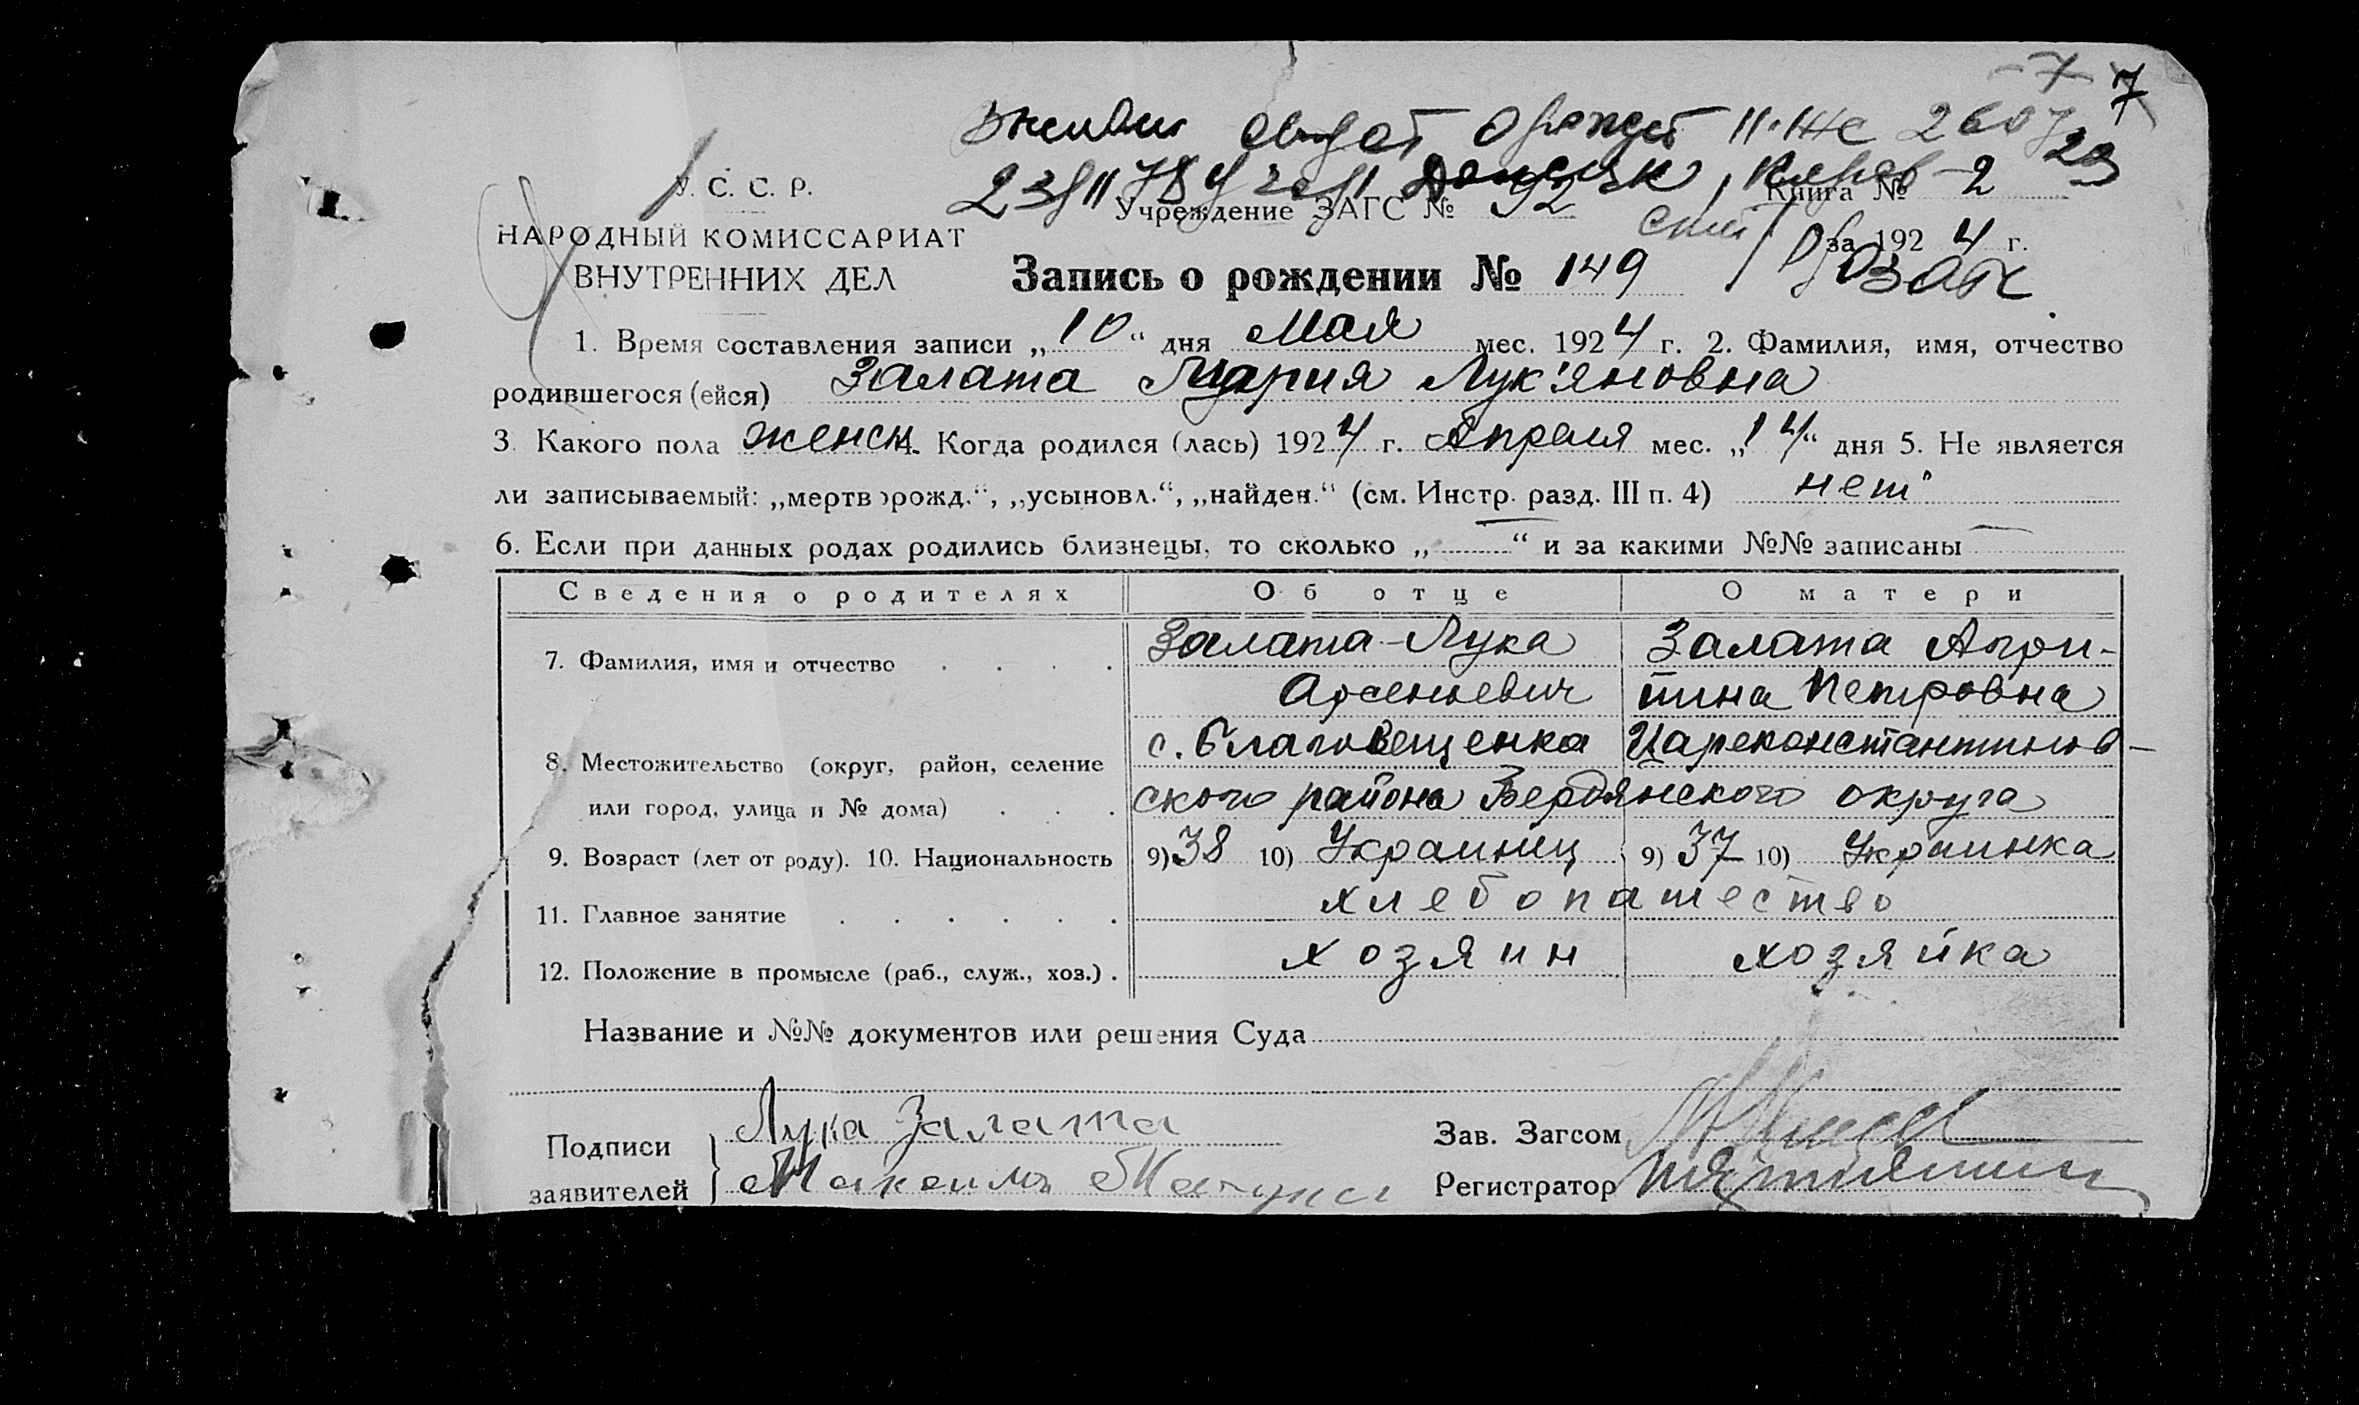 7 7
свидет II-ЖС 260723
У. С. С. Р.
Учреждение ЗАГС № 92 Книга № 2
НАРОДНЫЙ КОМИССАРИАТ
за 1924 г.
ВНУТРЕННИХ ДЕЛ
Запись о рождении № 149
1. Время составления записи „10“ дня Мая мес. 1924 г. 2. Фамилия, имя, отчество
родившегося (ейся) Залата Мария Лук'яновна
3. Какого пола женск 4. Когда родился (лась) 1924 г. Апреля мес. „14“ дня 5. Не является
ли записываемый: „мертворожд.“, „усыновл.“, „найден.“ (см. Инстр. разд. III п. 4) нет
6. Если при данных родах родились близнецы, то сколько „—“ и за какими №№ записаны —
Сведения о родителях Об отце О матери
7. Фамилия, имя и отчество Залата Лука Залата Агри-
Арсеньевич пина Петровна
8. Местожительство (округ, район, селение с. Благовещенка Цареконстантинов-
или город, улица и № дома) ского района Бердянского округа
9. Возраст (лет от роду). 10. Национальность 9) 38 10) Украинец 9) 37 10) Украинка
11. Главное занятие хлебопашество
12. Положение в промысле (раб., служ., хоз.) хозяин хозяйка
Название и №№ документов или решения Суда
Подписи Лука Залата Зав. Загсом
заявителей Максим Регистратор